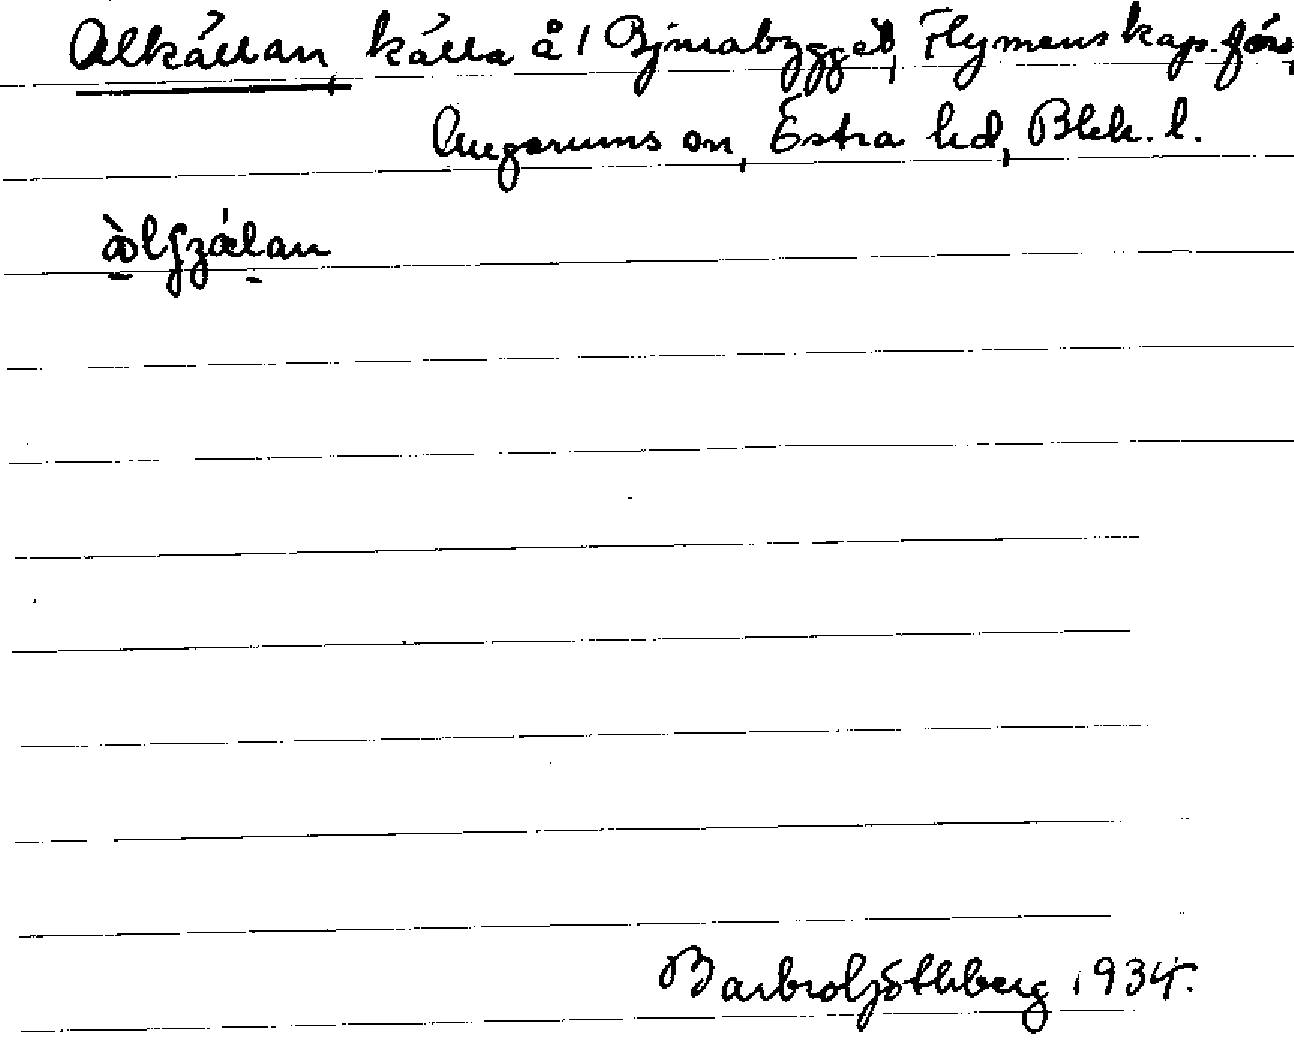 Alkällan, källa å 1 Björnabygget, Flymens kap. förs,
Augerums sn, Östra hd, Blek. l.
Barbro Göthberg 1934.